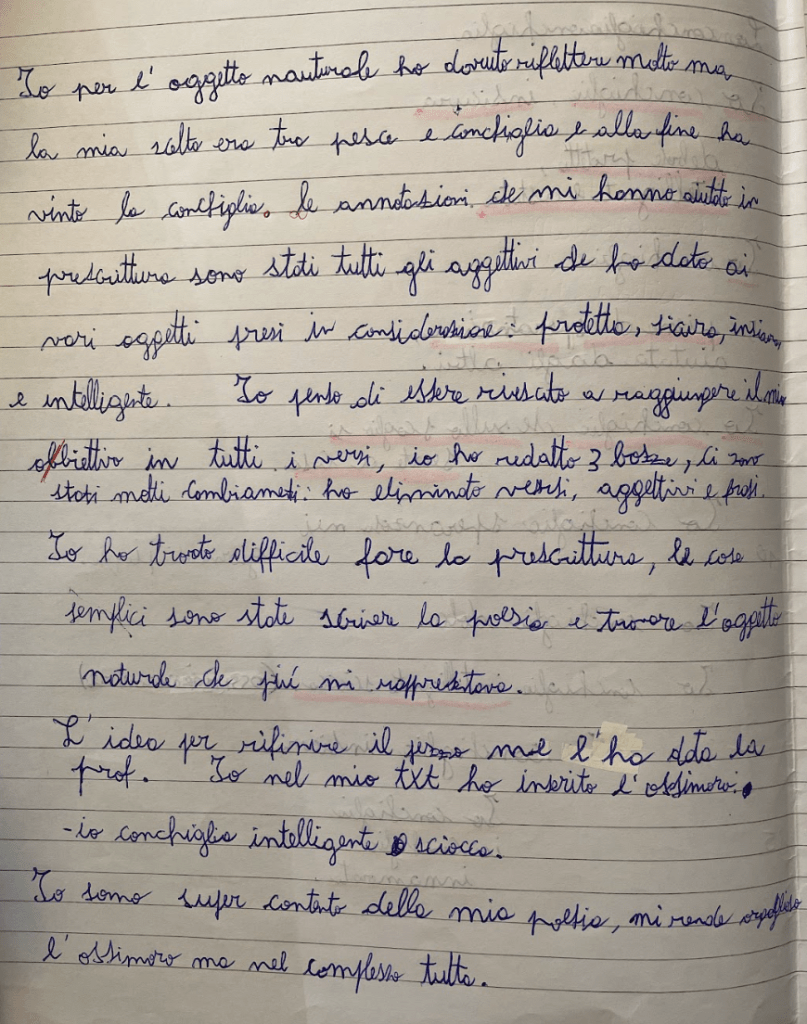 Io per l' oggetto nauturale ho dovuto riflettere molto ma
la mia scelta era tra pesce e conchiglia e alla fine ha
vinto la conchiglia. le annotazioni che mi hanno aiutato in
prescrittura sono stati tutti gli aggettivi che ho dato ai
vari oggetti presi in considerazione: protetta, sicura,
e intelligente. Io penso di essere riuscato a raggiungere il mio
obbiettivo in tutti i versi, io ho redatto 3 bozze, ci sono
stati molti combiameti: ho eliminato versi, aggettivi e frasi.
Io ho trovato difficile fare la prescrittura, le cose
semplici sono state scrivere la poesia e trovare l'oggetto
naturale che più mi rappresentava.
L' idea per rifinire il pezzo me l'ha data la
prof. Io nel mio txt ho inserito l'ossimoro:
-io conchiglia intelligente o sciocca.
Io sono super contento della mia poesia, mi rende orgoglioso
l'ossimoro ma nel complesso tutta.